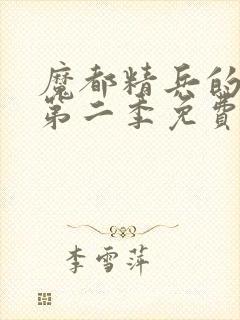 魔都精兵的
第二季免費
李雪萍